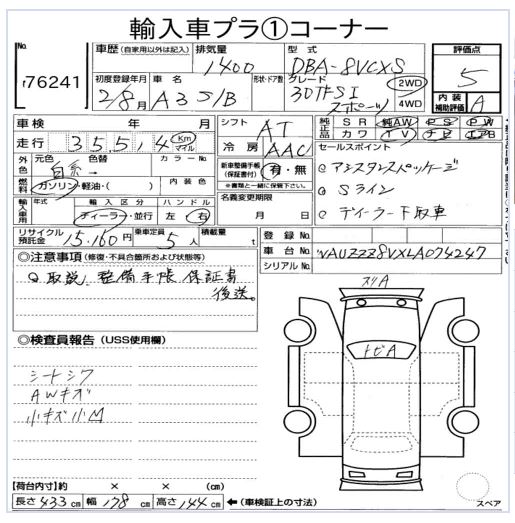 輸入車プラ①コーナー
No.
76241
車歴 (自家用以外は記入)
排気量 1400
型式 DBA-8VCXS
評価点 5
初度登録年月 28月
車名 A3 S/B
形状・ドア数
グレード 30TFSI スポーツ
2WD
4WD
内装補助評価 A
車検 年 月
シフト AT
純正 SR 純AW PS PW
革 カワ TV ナビ エアB
走行 355.4 Km マイル
冷房 AAC
セールスポイント
外色 元色 白系 色替 カラーNo.
新車整備手帳(保証書付) 有・無
※書類と一緒に保管下さい。
◎アシスタンスパッケージ
燃料 ガソリン・軽油・( ) 内装色
◎Sライン
輸入車用 年式 輸入区分 ハンドル
名義変更期限
ディーラー・並行 左 右
月 日
◎ディーラー下取車
リサイクル預託金 15,160円
乗車定員 5人
積載量 t
登録No.
車台No. WAUZZZ8VXLA074247
シリアルNo.
◎注意事項 (修復・不具合箇所および状態等)
◎取説、整備手帳、保証書
後送。
スリA
トビA
◎検査員報告 (USS使用欄)
シートシワ
AWキズ
小キズ小凹
【荷台内寸】約 × × (cm)
長さ 433 cm 幅 178 cm 高さ 144 cm ←(車検証上の寸法)
スペア